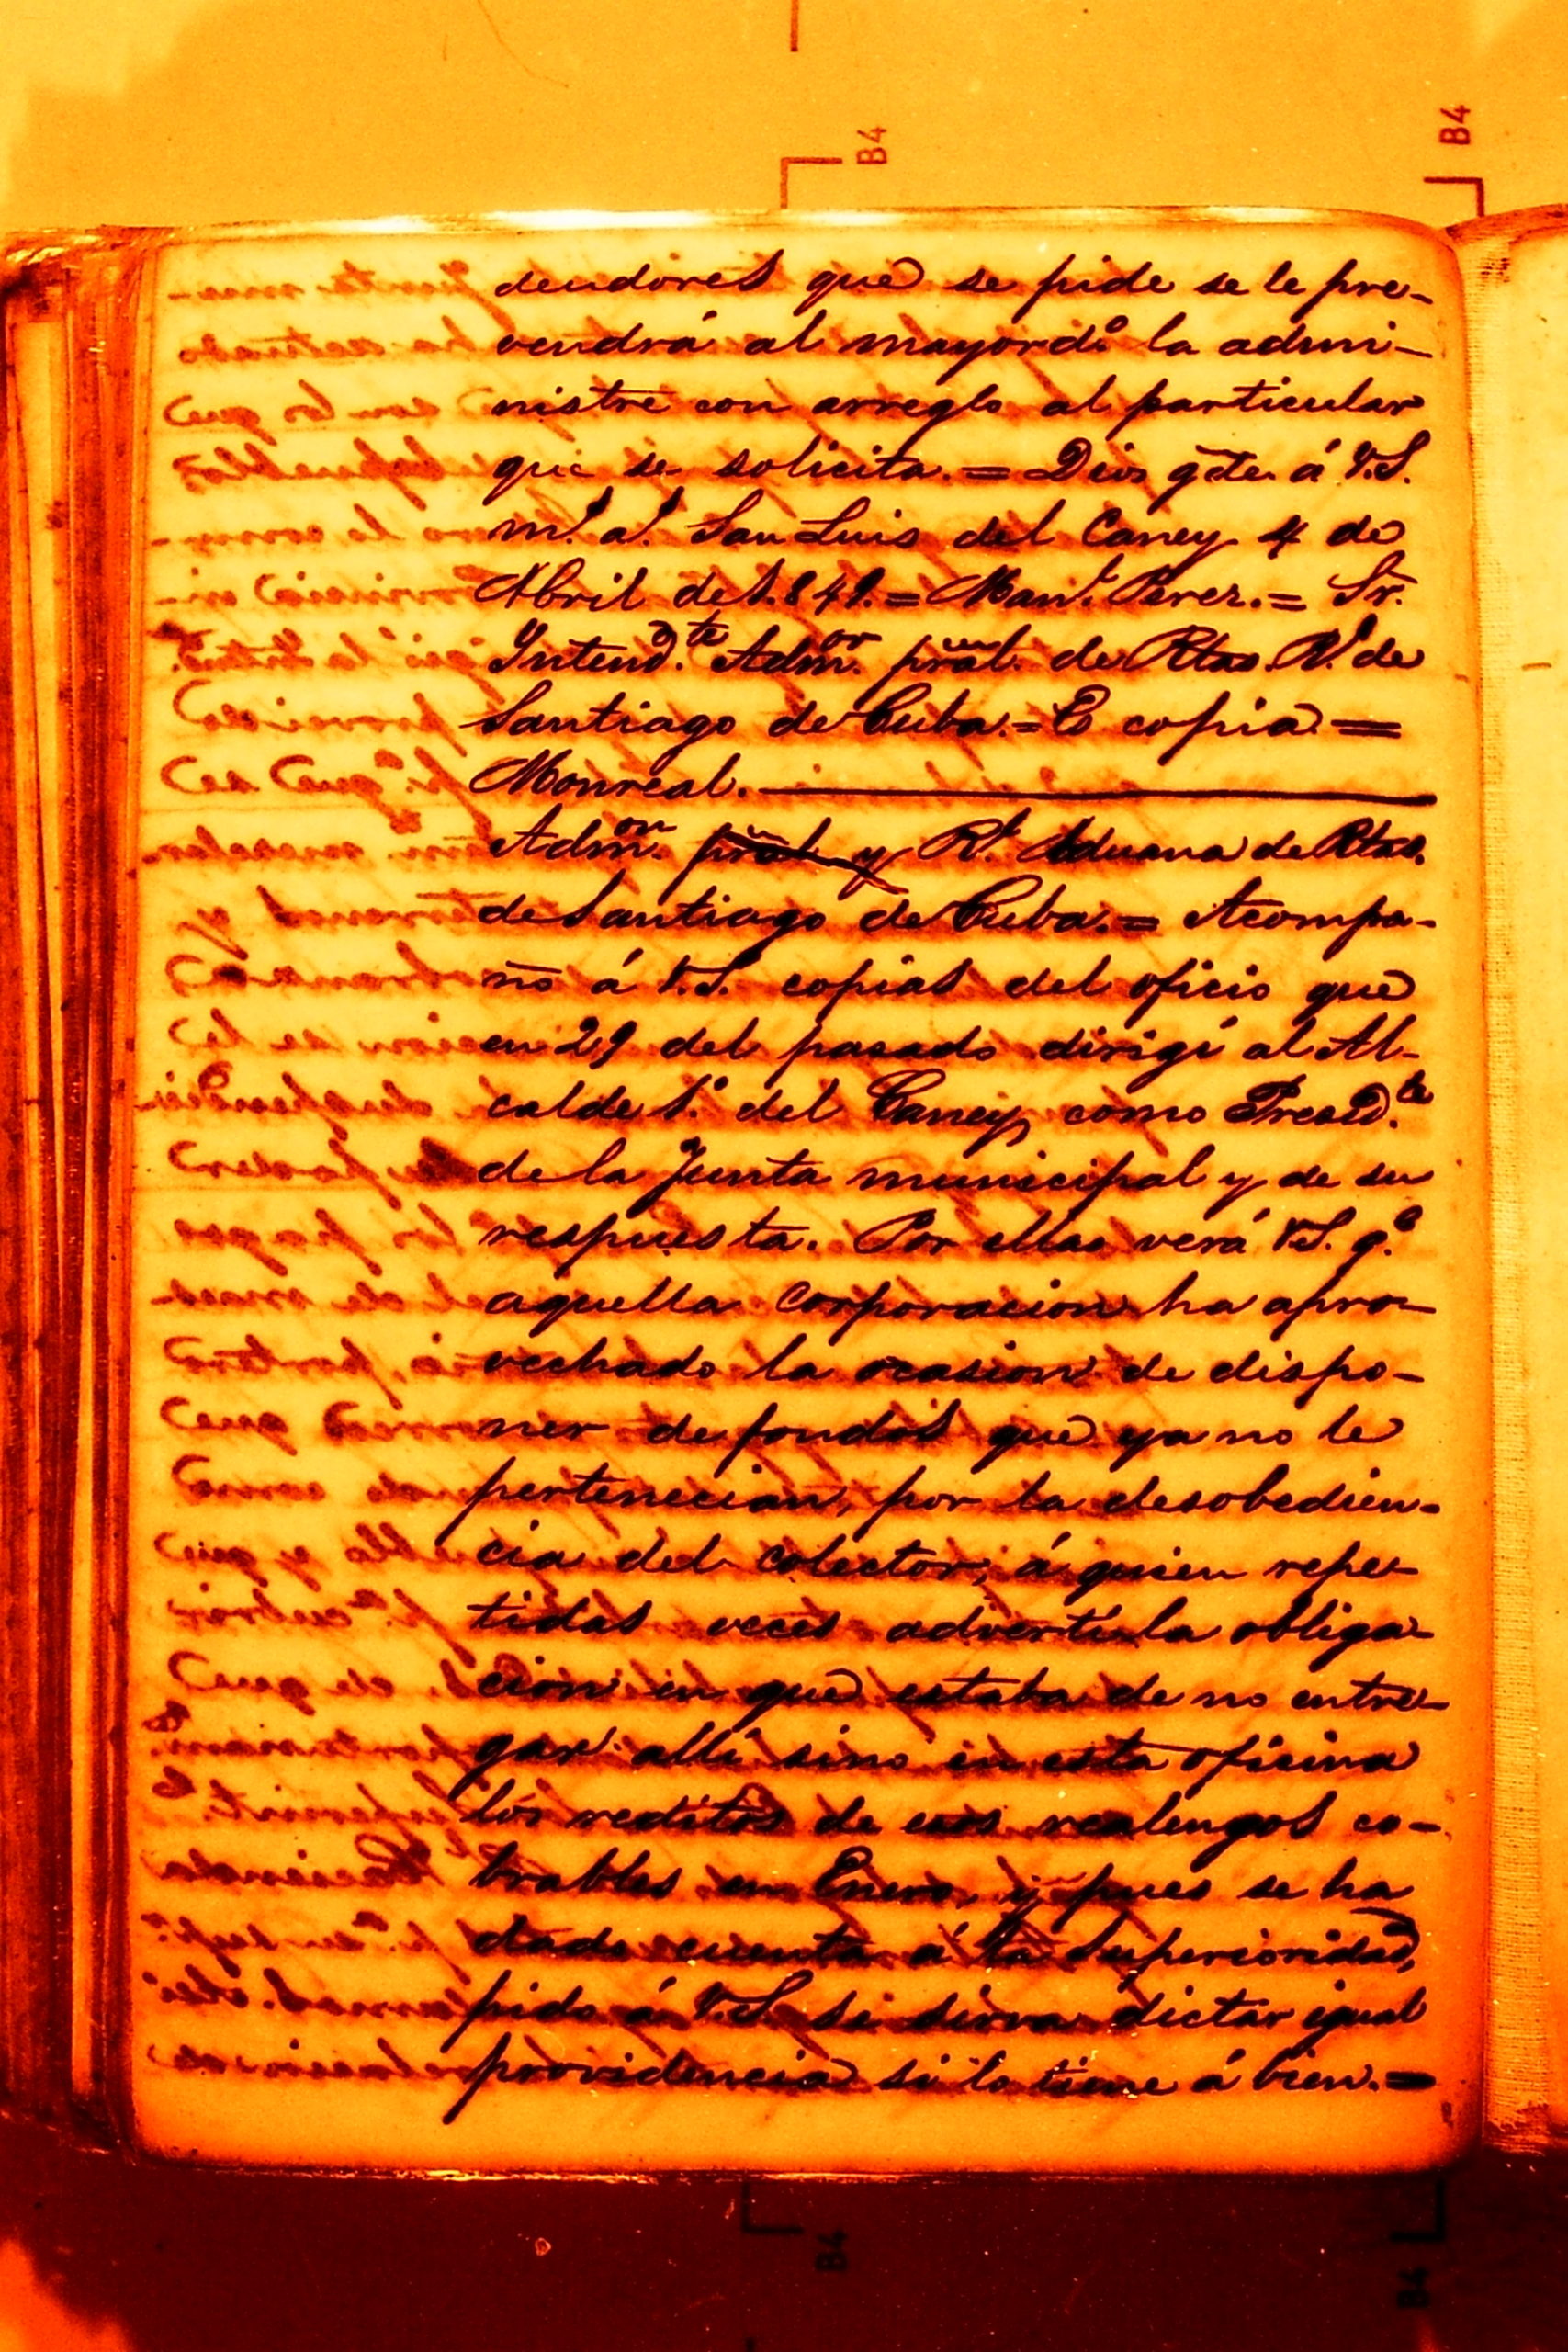 B4
B4
deudores que se pide se le pre-
vendrá al mayord.º la admi-
nistre con arreglo al particular
que se solicita. = Dios gűe. á V.S.
m.s a.s San Luis del Caney 4 de
Abril de 1.849. = Man.l Perez. = Sr.
Intend.te Adm.or pral. de Rtas. R.s de
Santiago de Cuba. = Es copia =
Monreal.
Adm.on pral y R.l Aduana de Rtas.
de Santiago de Cuba. = Acompa-
ño á V.S. copias del oficio que
en 29 del pasado dirigí al Al-
calde 1.º del Caney como Presid.te
de la Junta municipal y de su
respuesta. Por ellas verá V.S. q.e
aquella corporacion ha apro-
vechado la ocasion de dispo-
ner de fondos que ya no le
pertenecian, por la desobedien-
cia del colector, á quien repe-
tidas veces advertí la obliga-
cion en que estaba de no entre-
gar allí sino en esta oficina
los reditos de esos realengos co-
brables en Enero, y pues se ha
dado cuenta á la Superioridad,
pido á V.S. se sirva dictar igual
providencia si lo tiene á bien. =
B4
B4